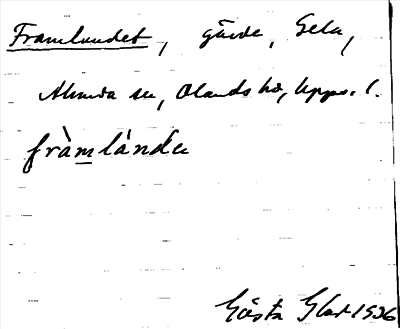 Framlandet, gärde, Gela,
Alunda sn, Olands hd, Upps. l.
fràmlánde
Gösta Glad 1936